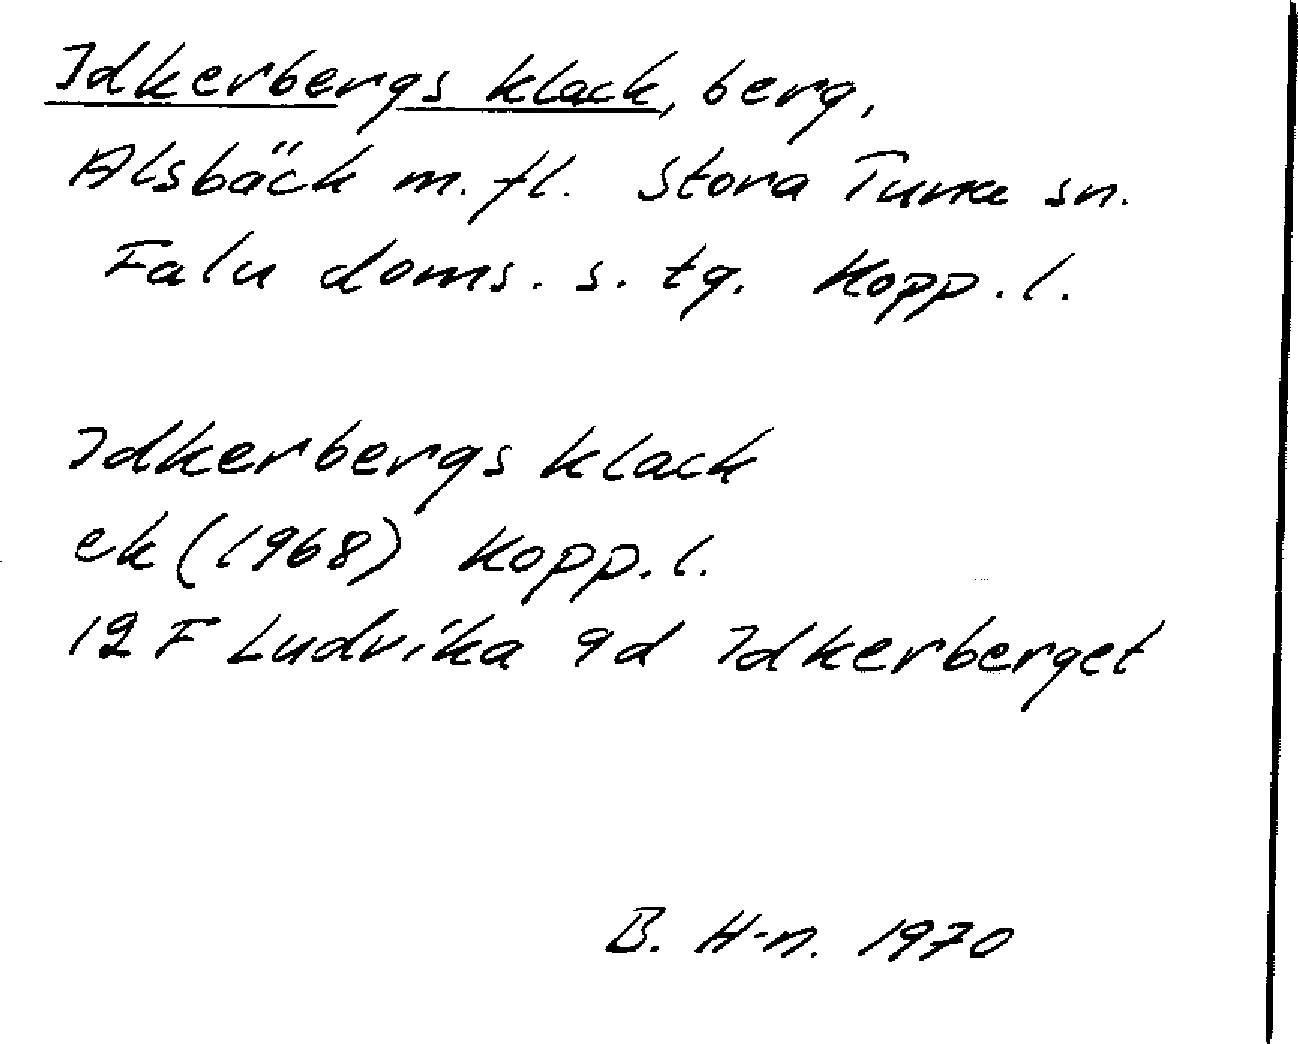 Idkerbergs klack, berg,
Alsbäck m.fl. Stora Tuna sn.
Falu doms. s. tg. Kopp.l.
Idkerbergs klack
ek (1968) Kopp.l.
12 F Ludvika 9d Idkerberget
B. H-n. 1970